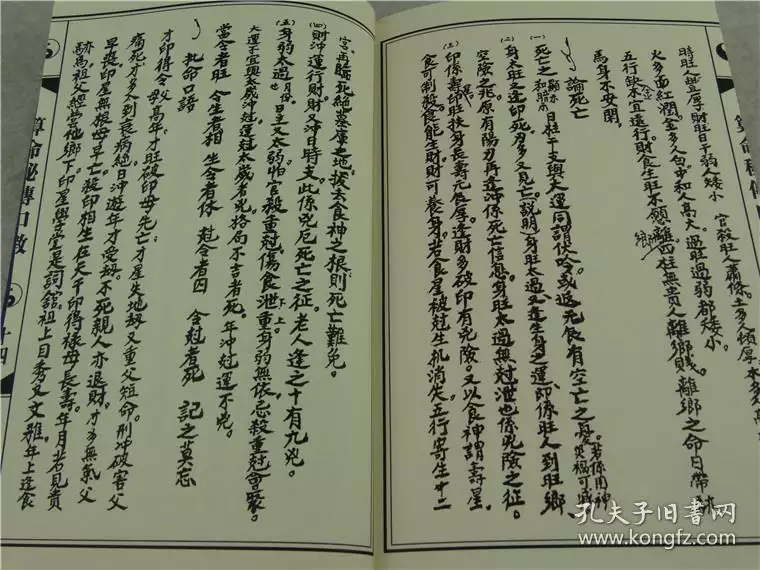 時旺人豐厚財旺日干弱人矮小 官殺旺人蕭條。土多人傾厚。水多人
火多面紅潤。金多人白。中和人高大。過旺過弱都矮小。
五行缺本宜遠行財食生旺不願離鄉四柱無貴人離鄉賤。離鄉之命日帶
馬身不安閑。
論死亡
(一)死亡之 日柱干支與大運同謂伏吟。或返元辰有空亡之憂。若係用神 災禍可減
(二)身太旺之逢印死刃多又見亡。說明身旺太過又逢生身之運即係旺人到旺鄉。
空險之死。原有陽刃再逢沖係死亡信息。身旺太過無尅泄也係凶險之征。
(三)印係壽印旺扶身長壽元辰厚逢財多破印有凶險。又以食神謂壽星。
食可制殺。食能生財財可養身。若食星被尅生机消失五行寄生十二
宮。再臨死絕墓庫之地。拔去食神之根。則死亡難免。
(四)財沖運行財財又沖日時支此係凶厄死亡之征。老人逢之十有九凶。
(五)身弱太過 月份 日主又太弱怕官殺重尅。傷食泄重身弱無依忌殺重尅會聚。
大運不宜與太歲沖尅運尅太歲者凶格局不吉者死。年沖尅運不凶。
當令者旺 令生者相 生令者休 尅令者囚 令尅者死 記之莫忘
批命口語
才印得令父母高年才旺破印母先亡才星失地劫又重父短命。刑沖破害父
痛死才多人到衰病絕日沖遊年才受劫。不死親人亦退財。才多無氣父
早喪印星無根母早亡。殺印相生在天干印得祿母長壽。年月若見貴
馬祖父經営他鄉下印星學堂是詞舘。祖上目秀又文雅。年上逢食
算命秘傳口教
十四
孔夫子旧書网
www.kongfz.com